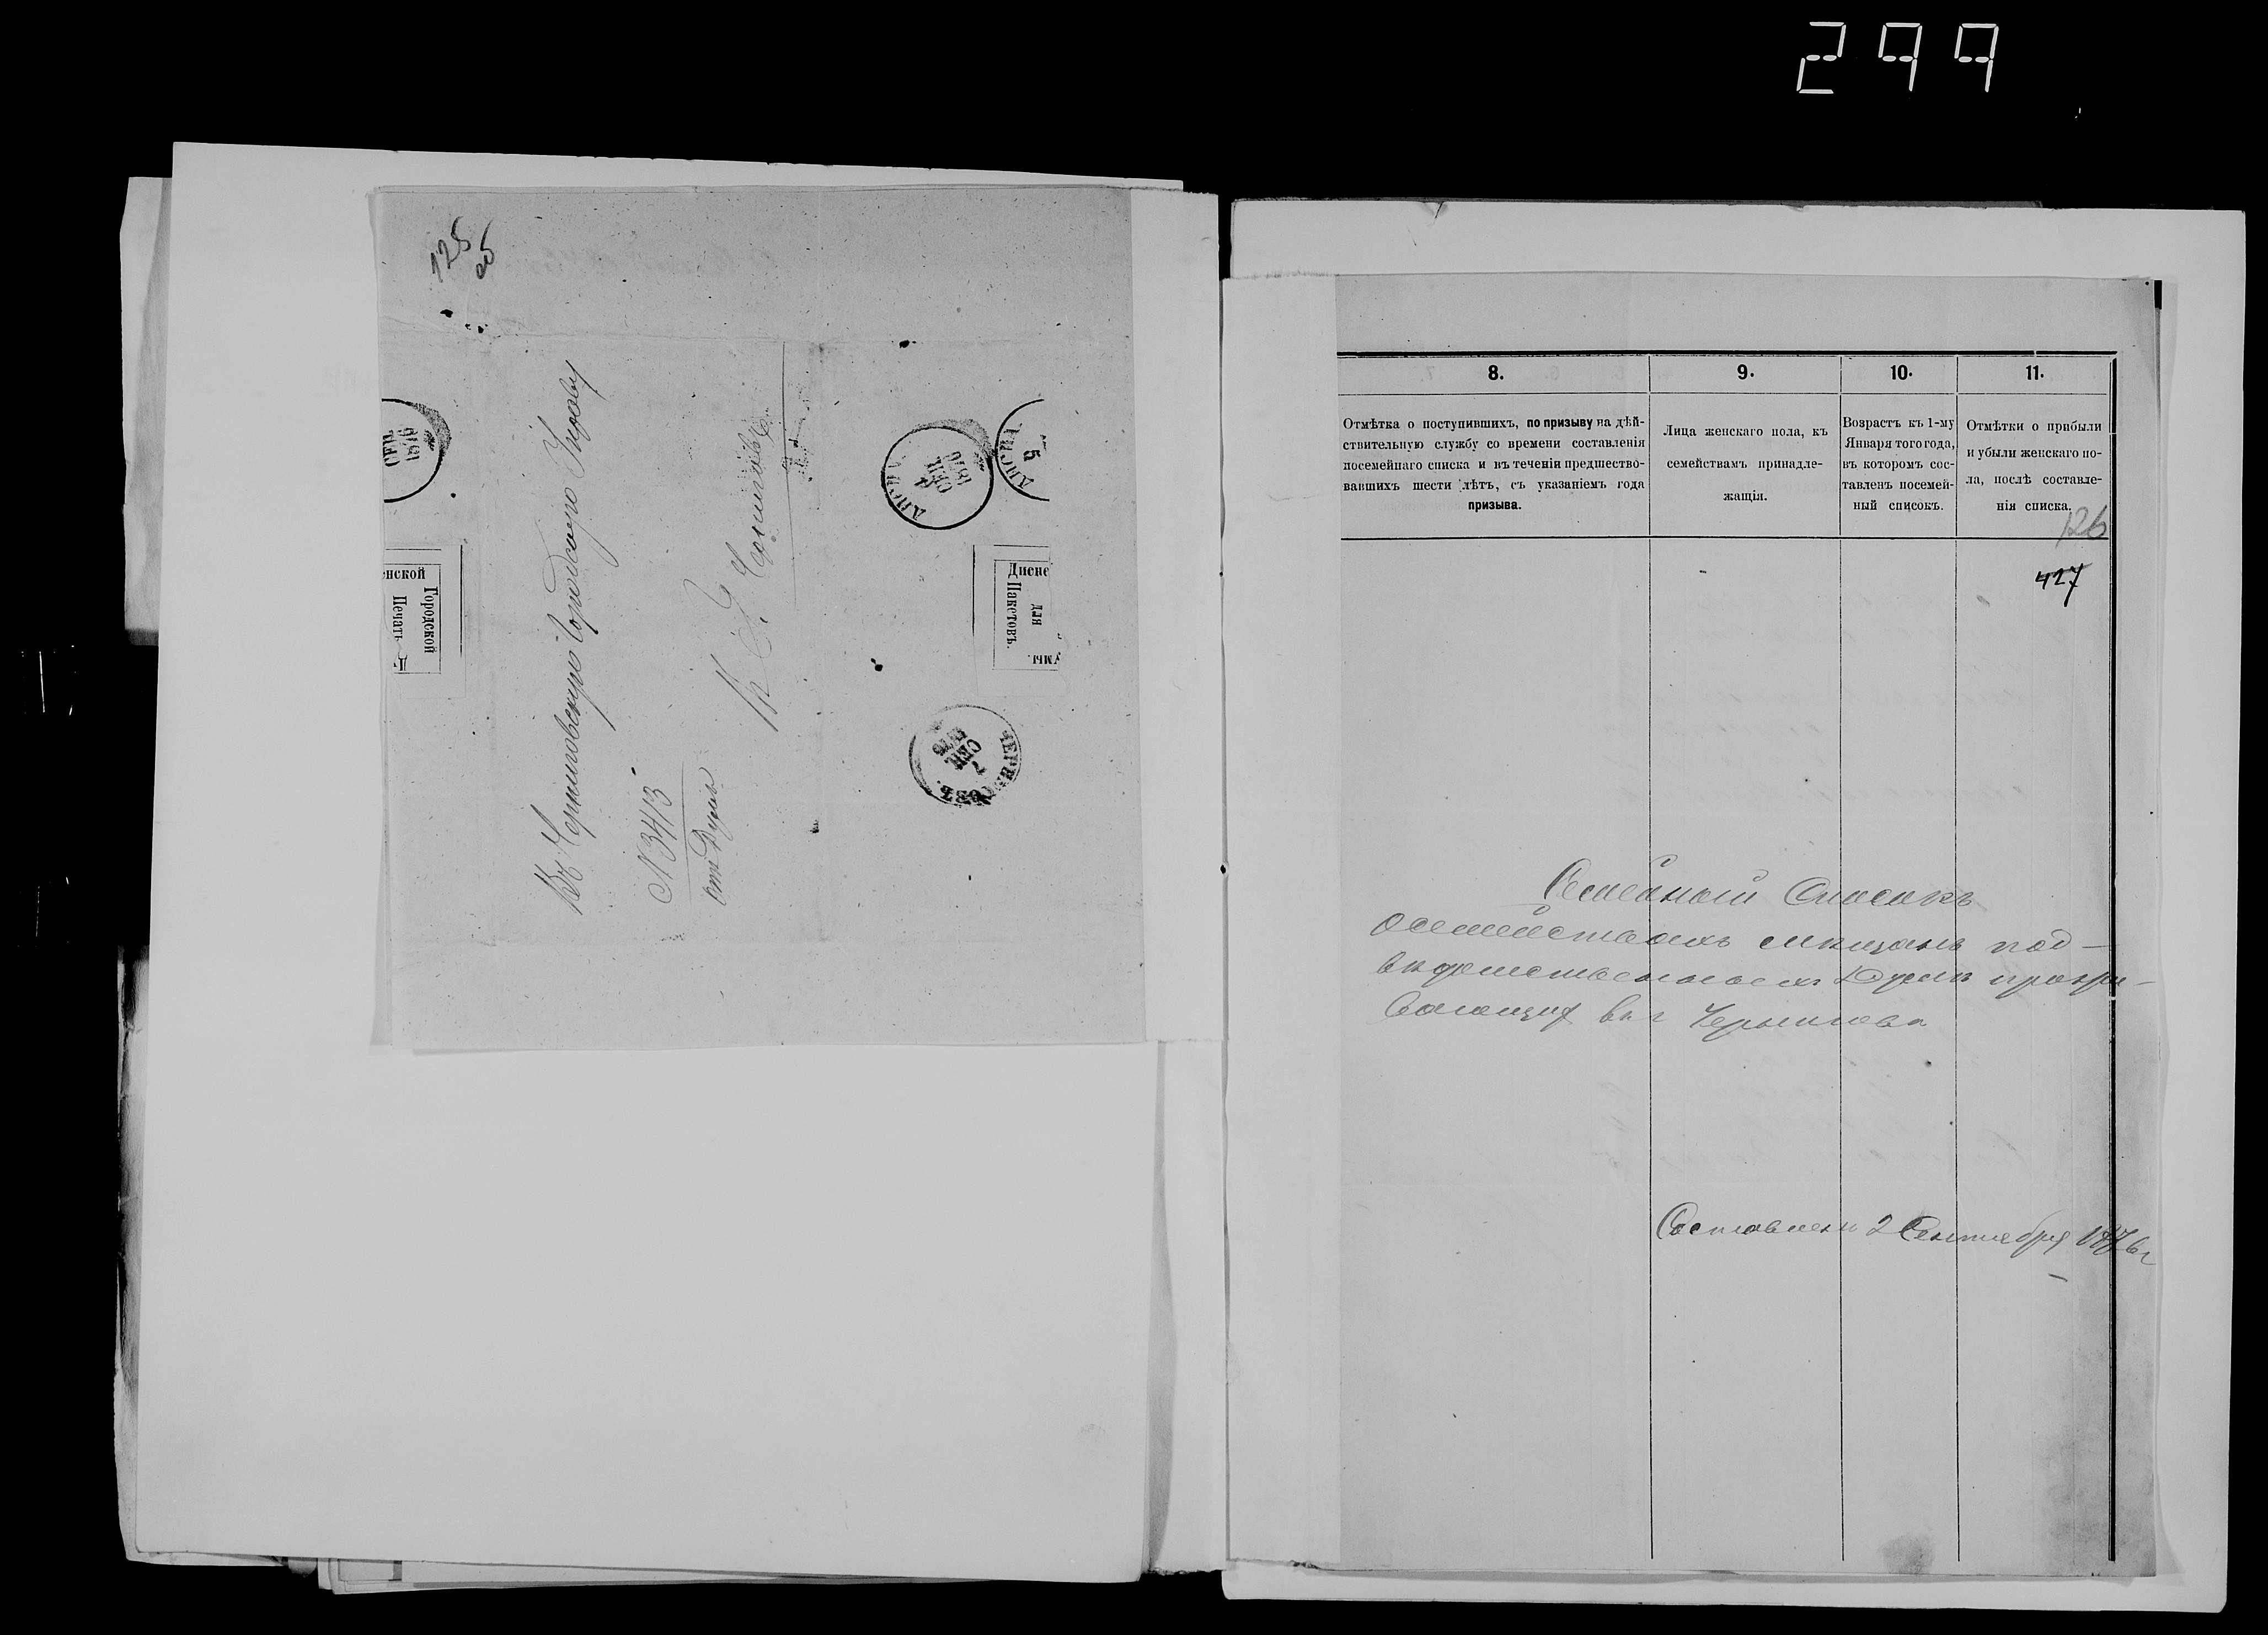 299
125
об
Въ Черниговскую Городскую Управу
N 3413
отъ Думы
Въ г. Черниговъ
1876
СЕН
ДИСНА
4
СЕН
1876
ДИСНА
5
ЧЕРНИГОВЪ
7
СЕН
1876
Печать Д
нской
Городской
Дисне
для
Пакетовъ.
умы.
8.
9.
10.
11.
Отмѣтка о поступившихъ, по призыву на дѣй-
ствительную службу со времени составленія
посемейнаго списка и въ теченіи предшество-
вавшихъ шести лѣтъ, съ указаніемъ года
призыва.
Лица женскаго пола, къ
семействамъ принадле-
жащія.
Возрастъ къ 1-му
Января того года,
въ которомъ сос-
тавленъ посемей-
ный списокъ.
Отмѣтки о прибыли
и убыли женскаго по-
ла, послѣ составле-
нія списка.
126
427
Семейный Списокъ
о семействахъ мѣщанъ под-
вѣдомственныхъ Думѣ прожи-
вающих въ г Черниговѣ
Составленъ 2 Сентября 1876 г